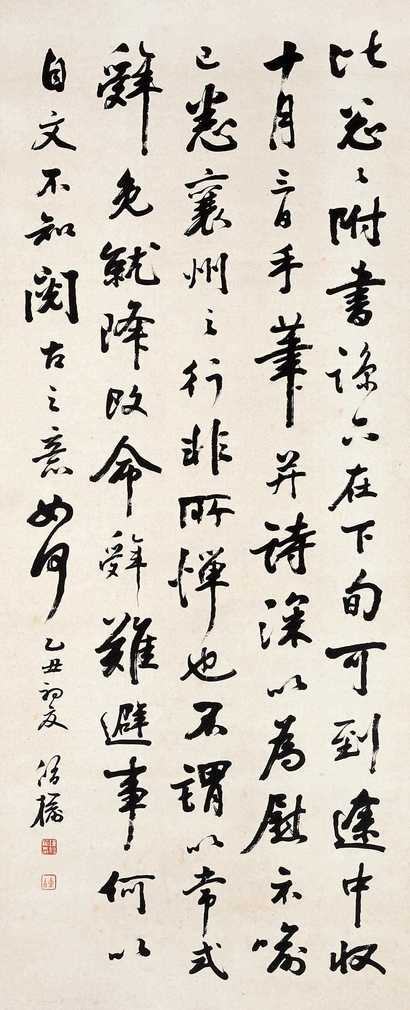 比忽々附書諒只在下旬可到逺中收
十月三日手筆并詩深以為慰示喻
已悉襄州之行非所憚也不謂以常式
辤免就降改命辤難避事何以
自文不知閱古之意如何
乙丑初夏